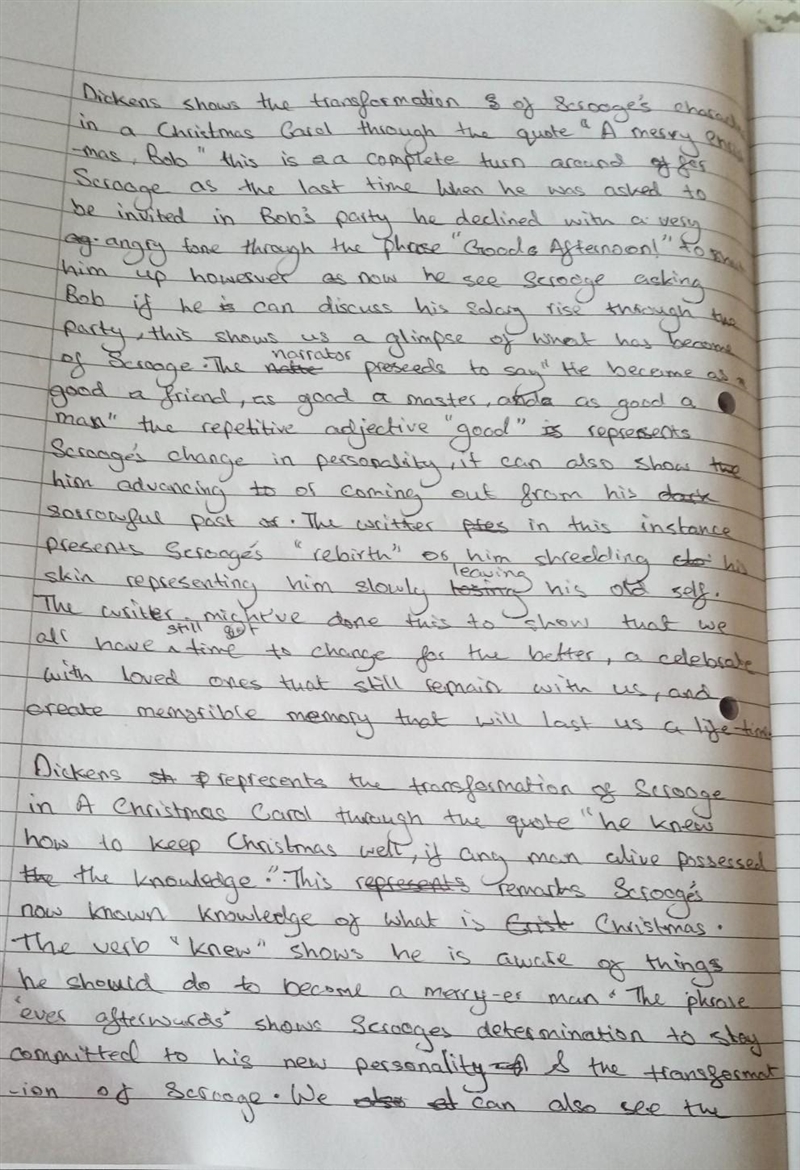 Dickens shows the transformation of Scrooge's
in a Christmas Carol through the quote "A merry
-mas, Bob" this is a complete turn around
Scrooge as the last time when he was asked to
be invited in Bob's party he declined with a very
angry tone through the phrase "Good Afternoon!" to
him up however as now he see Scrooge asking
Bob if he can discuss his salary rise through the
party, this shows us a glimpse of what has become
of Scrooge. The narrator preseeds to say "He became as
good a friend, as good a master, as good a
man" the repetitive adjective "good" represents
Scrooge's change in personality, it can also show
him advancing to of coming out from his
sorrowful past. The writter in this instance
presents Scrooge's "rebirth" him shredding his
skin representing him slowly leaving his old self.
The writer might've done this to show that we
all have still got time to change for the better, a celebrate
with loved ones that still remain with us, and
create memrible memory that will last us a life-time
Dickens represents the transformation of Scrooge
in A Christmas Carol through the quote "he knew
how to keep Christmas well, if any man alive possessed
the knowledge." This remarks Scrooge's
now known knowledge of what is Christmas.
The verb "knew" shows he is aware of things
he should do to become a merry-er man. The phrase
'ever afterwards' shows Scrooges determination to stay
committed to his new personality & the transformat
-ion of Scrooge. We can also see the